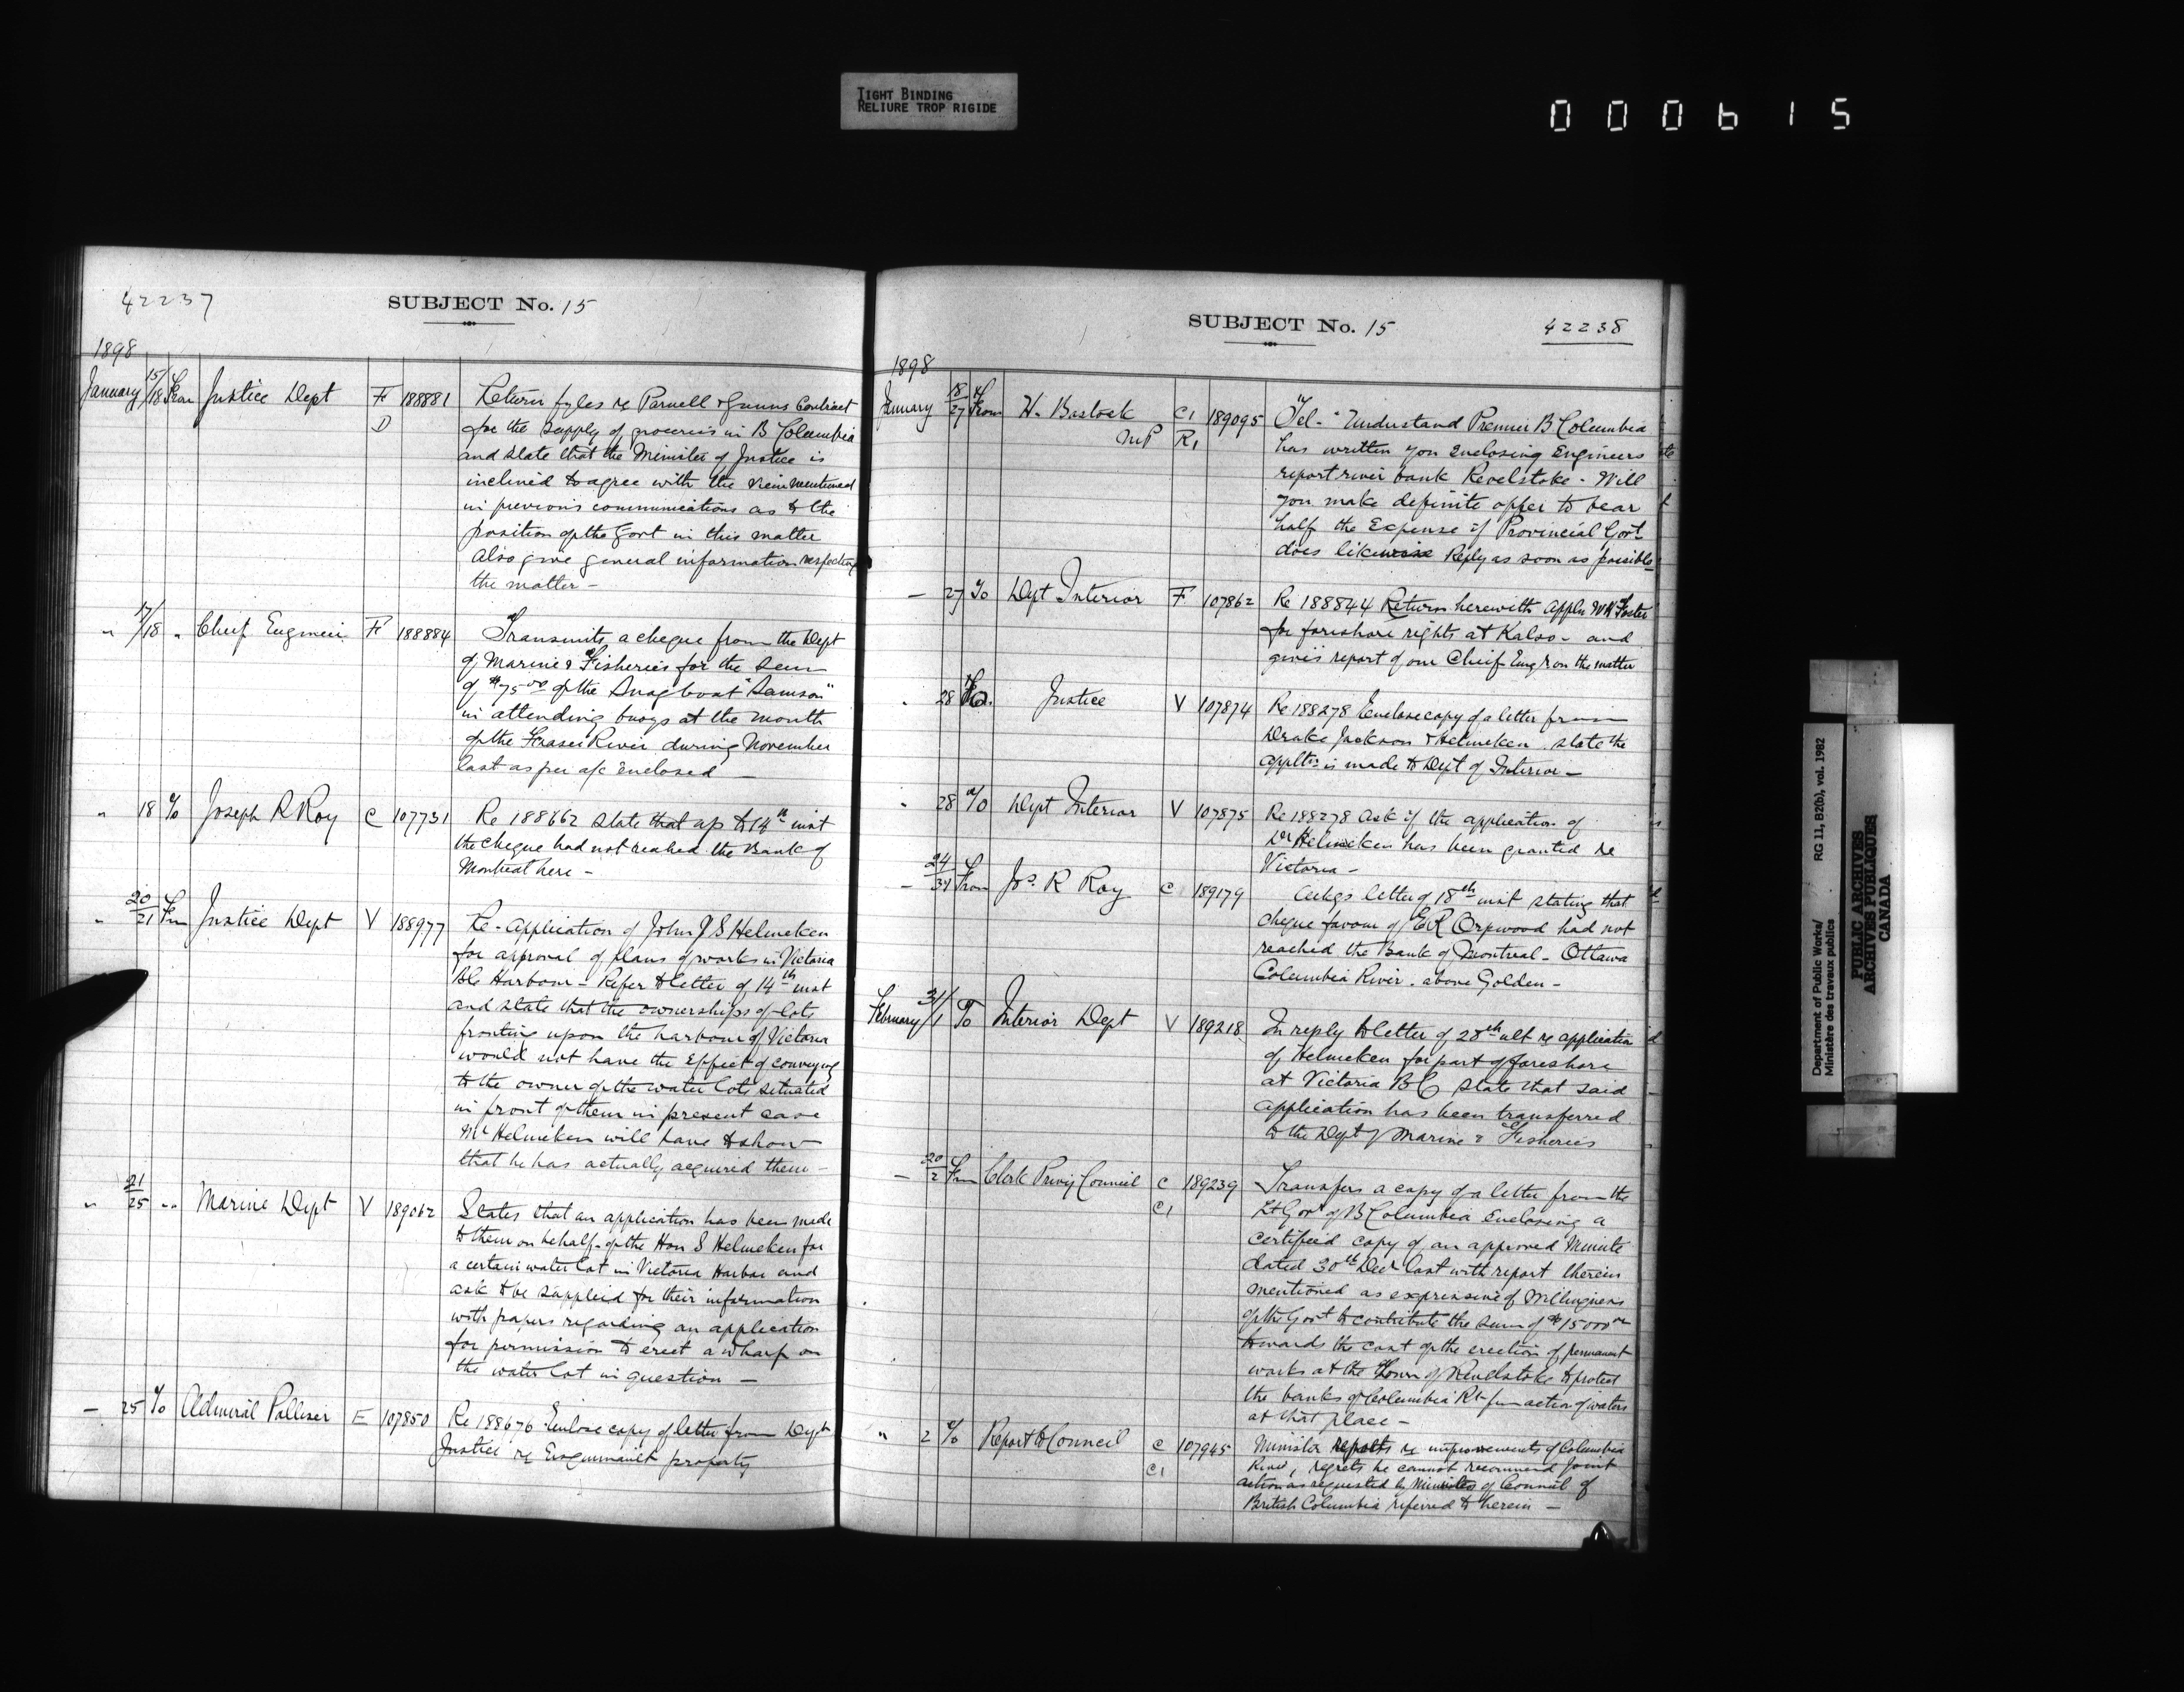 TIGHT BINDING
RELIURE TROP RIGIDE
000615
42237
SUBJECT No. 15
1898
January 15/18 From Justice Dept F D 188881 Return fyles re Parnell & Gunns Contract
for the supply of groceries in B Columbia
and state that the Minister of Justice is
inclined to agree with the view mentioned
in previous communications as to the
position of the Govt in this matter
also give general information respecting
the matter -
" 17/18 " Chief Engineer F 188884 Transmits a cheque from the Dept
of Marine & Fisheries for the sum
of $75.00 of the Snagboat "Samson"
in attending buoys at the mouth
of the Fraser River during November
last as per a/c enclosed -
" 18 To Joseph R Roy C 107731 Re 188662 state that up to 14th inst
the cheque had not reached the Bank of
Montreal here -
" 20/21 From Justice Dept V 188977 Re - Application of John J S Helmcken
for approval of plans of works in Victoria
BC Harbour - Refer to letter of 14th inst
and state that the ownerships of lots
fronting upon the harbour of Victoria
would not have the effect of conveying
to the owner of the water lots situated
in front of them in present case
Mr Helmcken will have to show
that he has actually acquired them -
" 21/25 " Marine Dept V 189062 States that an application has been made
to them on behalf of the Hon S Helmcken for
a certain water lot in Victoria Harbor and
ask to be supplied for their information
with papers regarding an application
for permission to erect a wharf on
the water lot in question -
- 25 To Admiral Palliser E 107850 Re 188676 Enclose copy of letter from Dept
Justice re Esquimault property
SUBJECT No. 15
42238
1898
January 18/27 From H. Bostock MP C1 R1 189095 Tel - "Understand Premier B Columbia
has written you enclosing Engineers
report river bank Revelstoke - Will
you make definite offer to bear
half the Expense if Provincial Govt
does likewise Reply as soon as possible
- 27 To Dept Interior F 107862 Re 188844 Return herewith Appln W H Foster
for foreshore rights at Kalso - and
gives report of our Chief Engr on the matter
" 28 To Justice V 107874 Re 188278 Enclose copy of a letter from
Drake Jackson & Helmcken state the
appltn is made to Dept of Interior -
" 28 To Dept Interior V 107875 Re 188278 Ask if the application of
Dr Helmcken has been granted re
Victoria -
- 24/31 From Jos. R Roy C 189179 Ackgs letter of 18th inst stating that
cheque favour of E R Orpwood had not
reached the Bank of Montreal - Ottawa
Columbia River - above Golden -
February 31/1 To Interior Dept V 189218 In reply to letter of 28th ult re application
of Helmcken for part of foreshore
at Victoria BC state that said
application has been transferred
to the Dept of Marine & Fisheries
- 20/2 From Clerk Privy Council C C1 189239 Transfers a copy of a letter from the
Lt Govr of B Columbia Enclosing a
certified copy of an approved Minute
dated 30th Decr last with report therein
mentioned as expressive of willingness
of the Govt to contribute the sum of $15000.00
towards the cost of the erection of permanent
works at the Town of Revelstoke to protect
the banks of Columbia Rr from action of waters
at that place -
" 2 To Report to Council C C1 107945 Minister reports re improvements of Columbia
River, regrets he cannot recommend joint
action as requested by Minutes of Council of
British Columbia referred to herein -
Department of Public Works/ RG 11, B2(b), vol. 1982
Ministère des travaux publics
PUBLIC ARCHIVES
ARCHIVES PUBLIQUES
CANADA